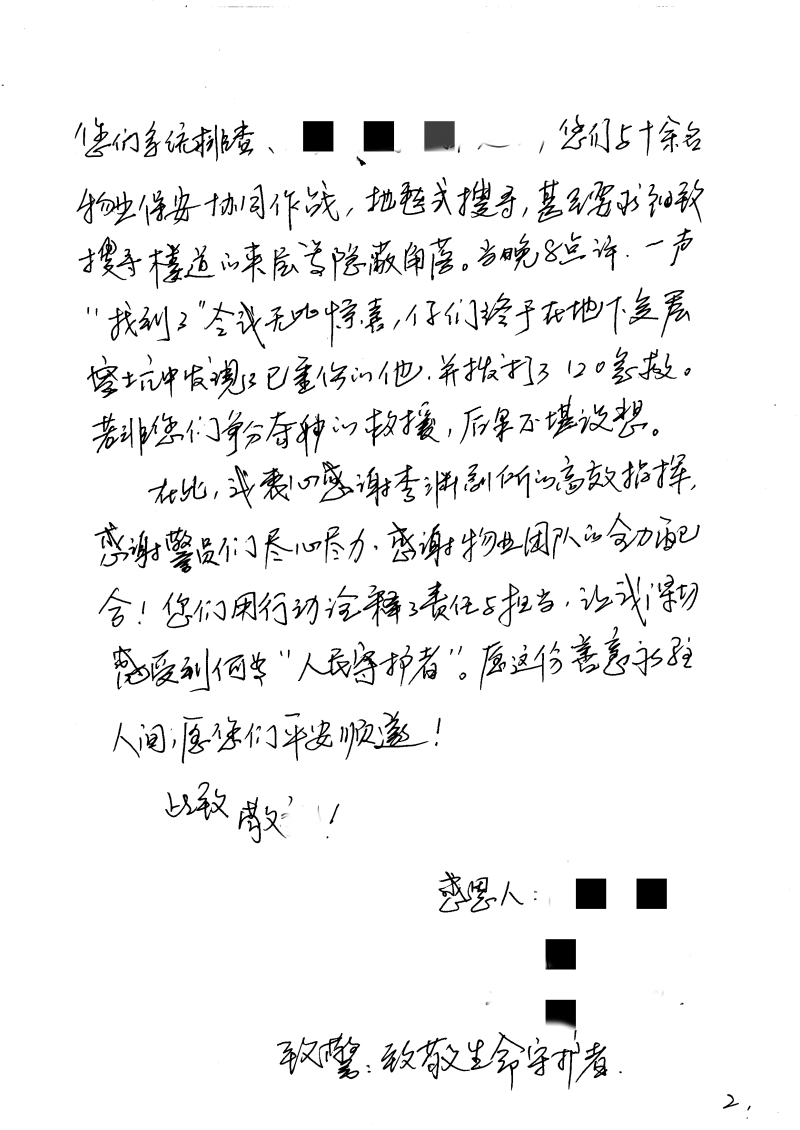 您们系统排查、■ ■ ■ ，您们与十余名
物业保安协同作战，地毯式搜寻，甚至要求细致
搜寻楼道的夹层等隐蔽角落。当晚8点许．一声
“找到了”令我无比惊喜，仔们终于在地下负层
窖坑中发现了已重伤的他．并拨打了120急救。
若非您们争分夺秒的救援，后果不堪设想。
在此，我衷心感谢李渊副所的高效指挥，
感谢警员们尽心尽力．感谢物业团队的全力配
合！您们用行动诠释了责任与担当，让我深切
感受到何为“人民守护者”。愿这份善意永驻
人间，愿您们平安顺遂！
此致 敬 ！
感恩人：■ ■
■
■
致警：致敬生命守护者．
2.